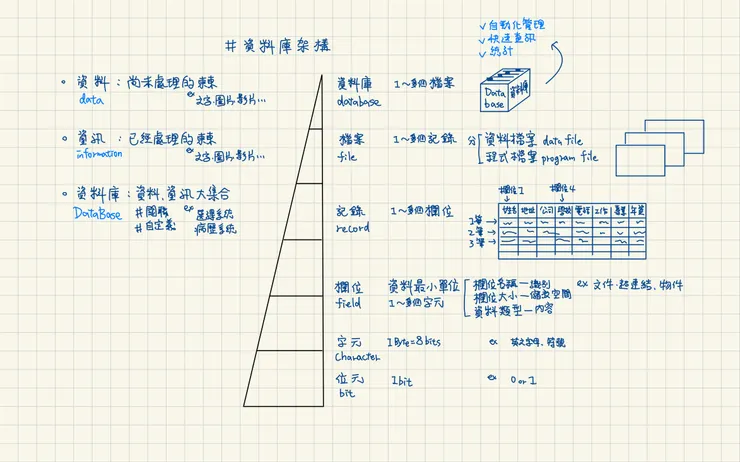 # 資料庫架構
✓ 自動化管理
✓ 快速查訊
✓ 統計
• 資料：尚未處理的東東
data ex 文字.圖片.影片...
• 資訊：已經處理的東東
information ex 文字.圖片.影片...
• 資料庫：資料、資訊大集合
DataBase #關聯 ex 選課系統
#自定義 病歷系統
資料庫 1~多個檔案
database
Data base 資料庫
檔案 1~多個記錄 分 資料檔案 data file
file 程式檔案 program file
記錄 1~多個欄位
record
欄位1 欄位4
姓名 地址 公司 學校 電話 工作 專業 年資
1筆→
2筆→
3筆→
欄位 資料最小單位 欄位名稱—識別 ex 文件.超連結、物件
field 1~多個字元 欄位大小—儲存空間
資料類型—內容
字元 1Byte=8bits ex 英文字母、符號
Character
位元 1bit ex 0 or 1
bit